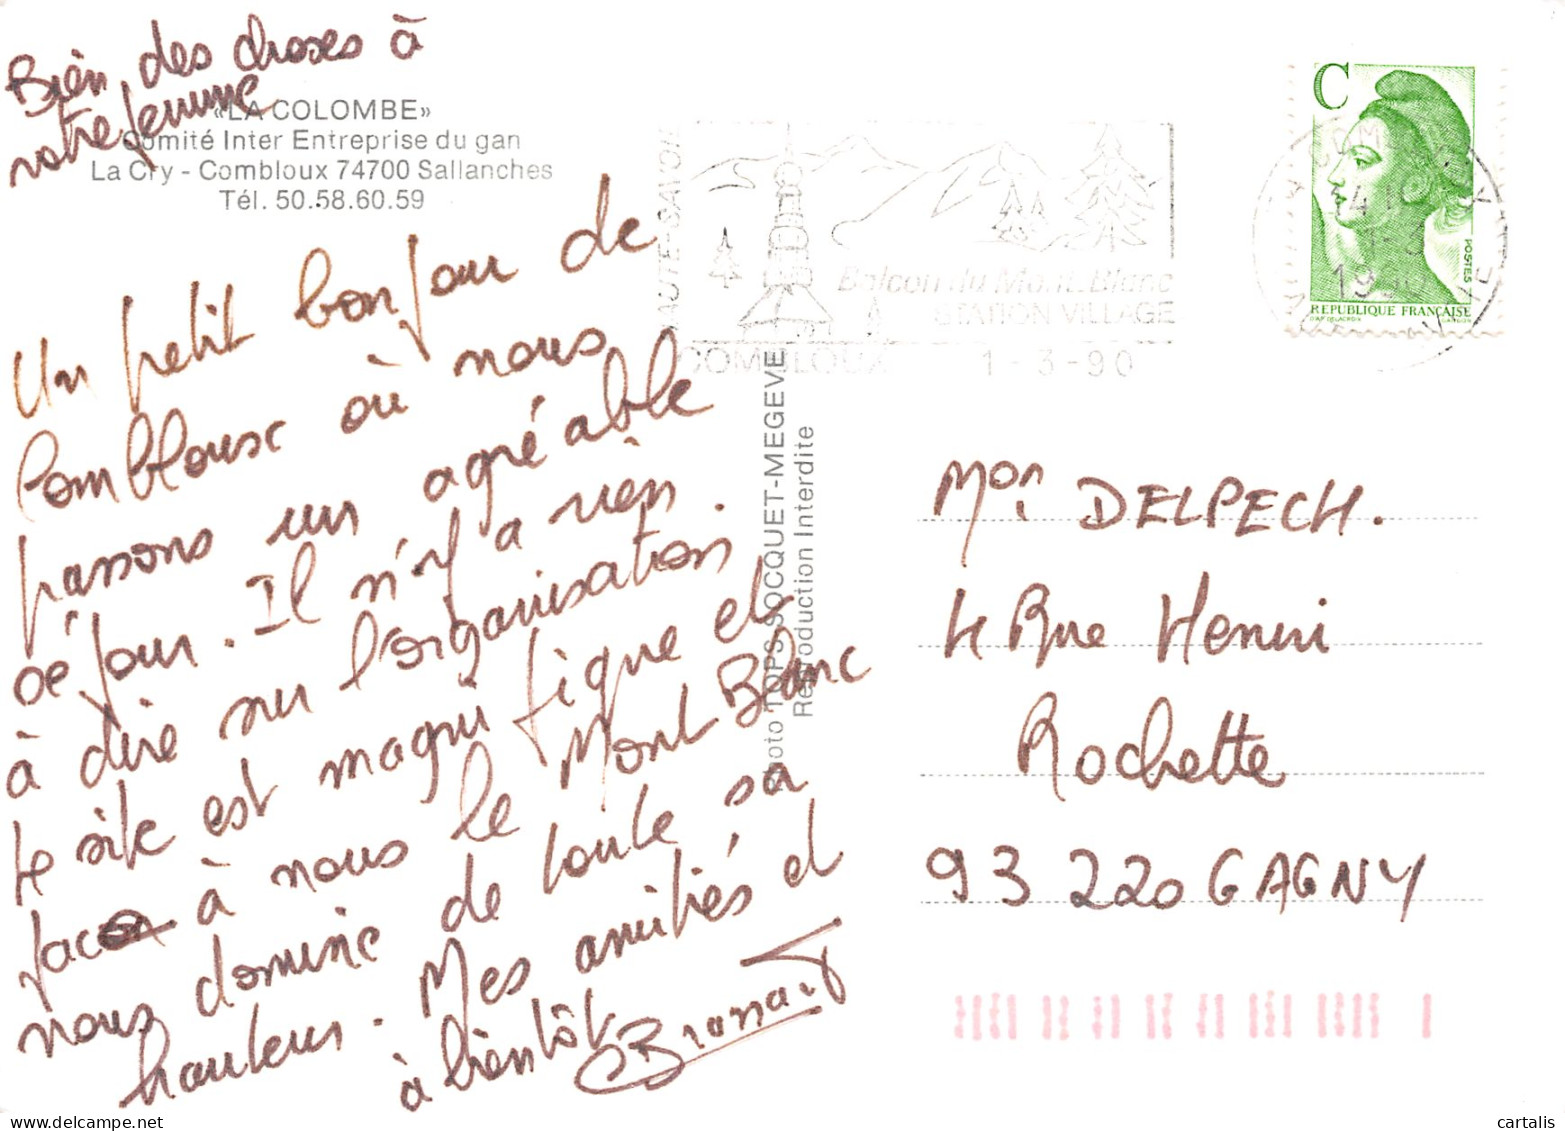 Bien des choses à
votre femme
«LA COLOMBE»
Comité Inter Entreprise du gan
La Cry - Combloux 74700 Sallanches
Tél. 50.58.60.59
Un petit bonjour de
Combloux où nous
passons un agréable
séjour. Il n'y a rien
à dire sur l'organisation.
Le site est magnifique et
face à nous le Mont Blanc
nous domine de toute sa
hauteur. Mes amitiés et
à bientôt
Photo TOPS-SOCQUET-MEGEVE
Reproduction Interdite
HAUTE-SAVOIE
Balcon du Mont-Blanc
STATION VILLAGE
COMBLOUX 1-3-90
C
POSTES
REPUBLIQUE FRANÇAISE
1990
Mon. DELPECH.
4 Rue Henri
Rochette
93 220 GAGNY
cartalis